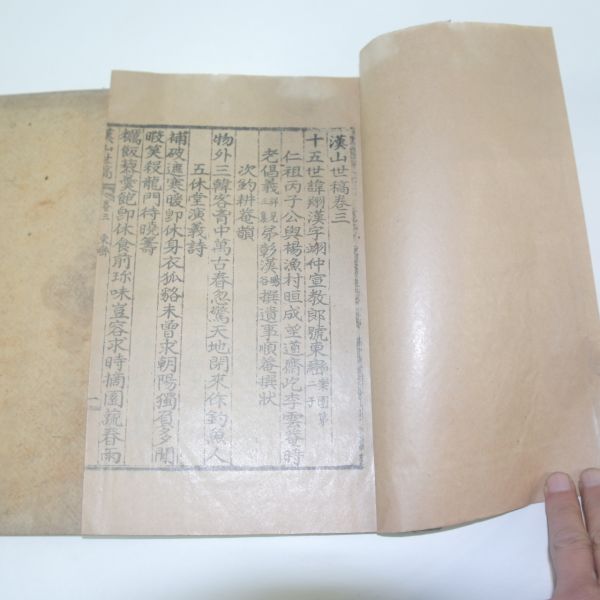 漢山世稿卷三
十五世諱翊漢字翊仲宣教郎號東
仁祖丙子公與楊漁村晅成望道齋屹李雲菴時
老倡義詳見三集矣彰漢撰遺事順菴撰狀
次釣耕菴韻
物外三韓客胷中萬古春忽驚天地閉來作釣魚人
五休堂演義詩
補破遮寒暖卽休身衣狐貉未曾求朝陽獨負多閒
暇笑殺龍門待曉籌
糲飯藜羹飽卽休食前珎味豈容求時摘園蔬春雨
漢山世稿 卷三 東